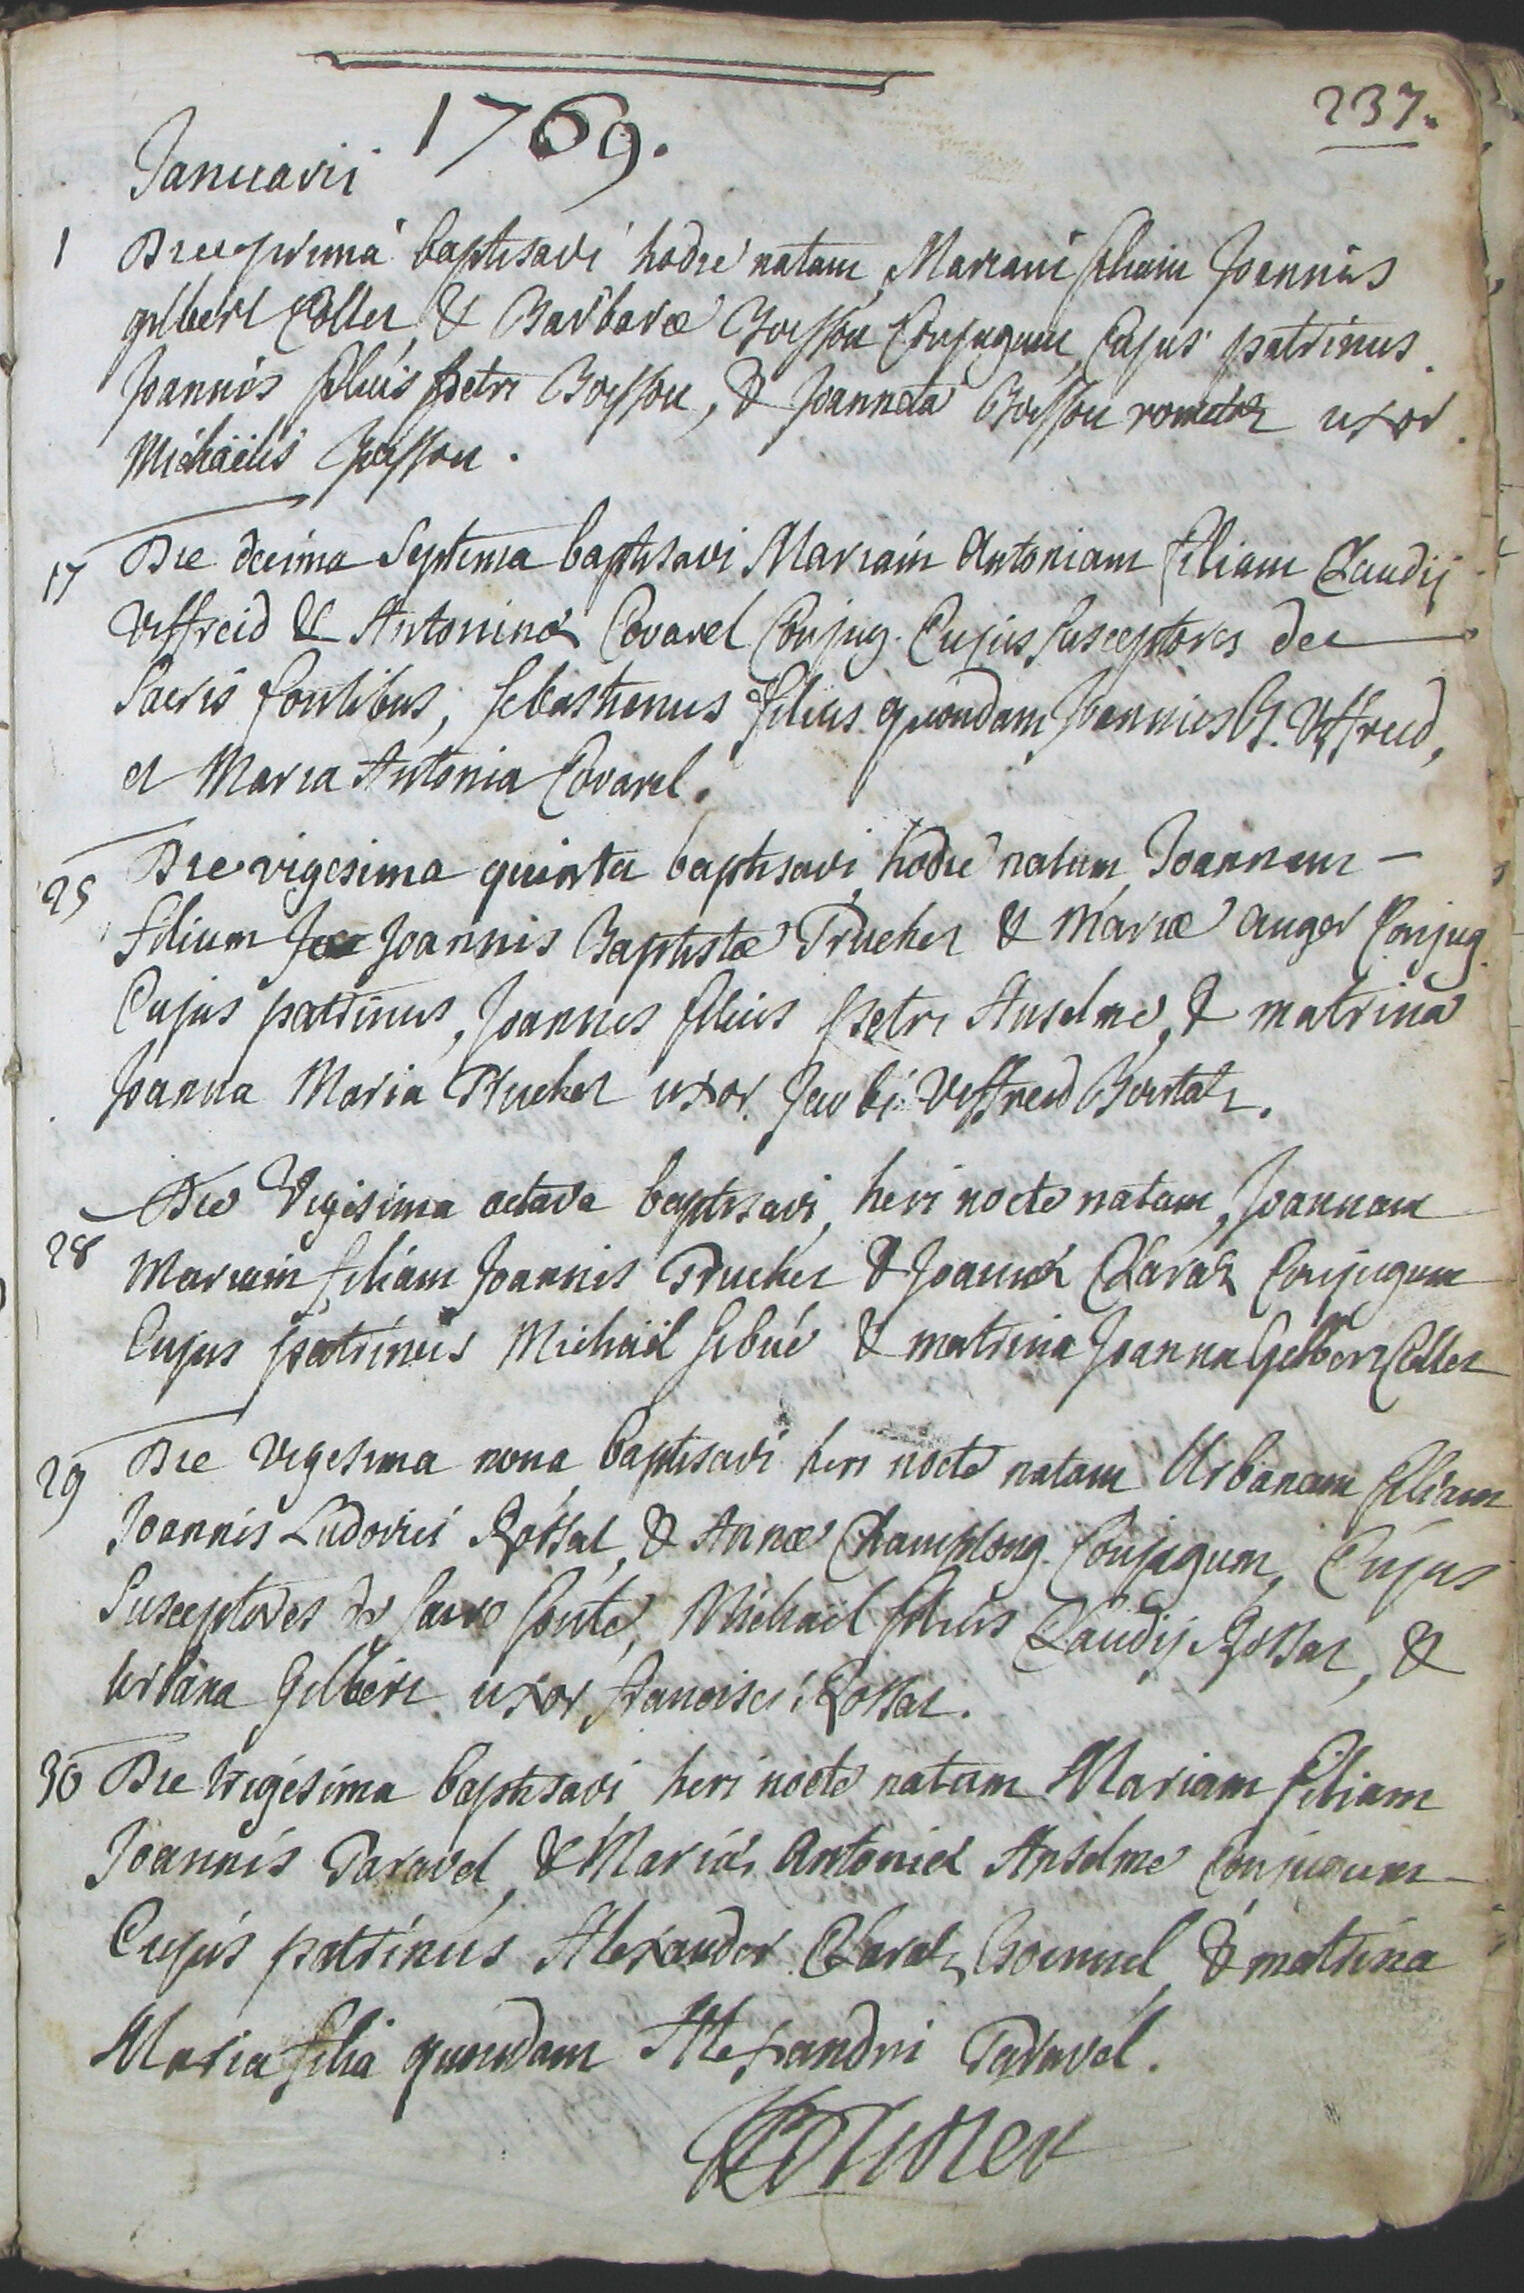 237.
1769.
Januarii
1 Die prima baptisavi hodie natam Mariam filiam Joannis
gilbert Collet & Barbaræ Boisson Conjugum Cujus patrinus
Joannis filius petri Boisson, & Joanneta Boisson uxor
Michaëlis Boisson.
17 Die decima Septima baptisavi Mariam Antoniam filiam Claudij
Viffreid & Antoninæ Covarel Conjug. Cujus Susceptores de
Sacris fontibus, sebastianus filius quondam Joannis B. Viffreid,
et Maria Antonia Covarel.
25 Die vigesima quinta baptisavi hodie natum Joannem
filium Joannis Baptistæ Trucher & Mariæ auger Conjug.
Cujus patrinus, Joannes filius petri Anselme, & matrina
Joanna Maria Trucher uxor Jacobi Viffreid
28 Die Vigesima octava baptisavi, heri nocte natam, Joannam
Mariam filiam Joannis Trucher & Joannæ Claraz Conjugum
Cujus patrinus Michaël & matrina Joanna Gilbert Collet
29 Die vigesima nona baptisavi heri nocte natam Urbanam filiam
Joannis Ludovici Rossat, & Annæ Champlong Conjugum, Cujus
Susceptores de sacro fonte, Michaël filius Claudij Rossat, &
Urbana Gilbert uxor francisci Rossat.
30 Die trigesima baptisavi heri nocte natam Mariam filiam
Joannis Taravel & Mariæ Antoniæ Anselme Conjugum
Cujus patrinus Alexander Claraz & matrina
Maria filia quondam Alexandri Taravel.